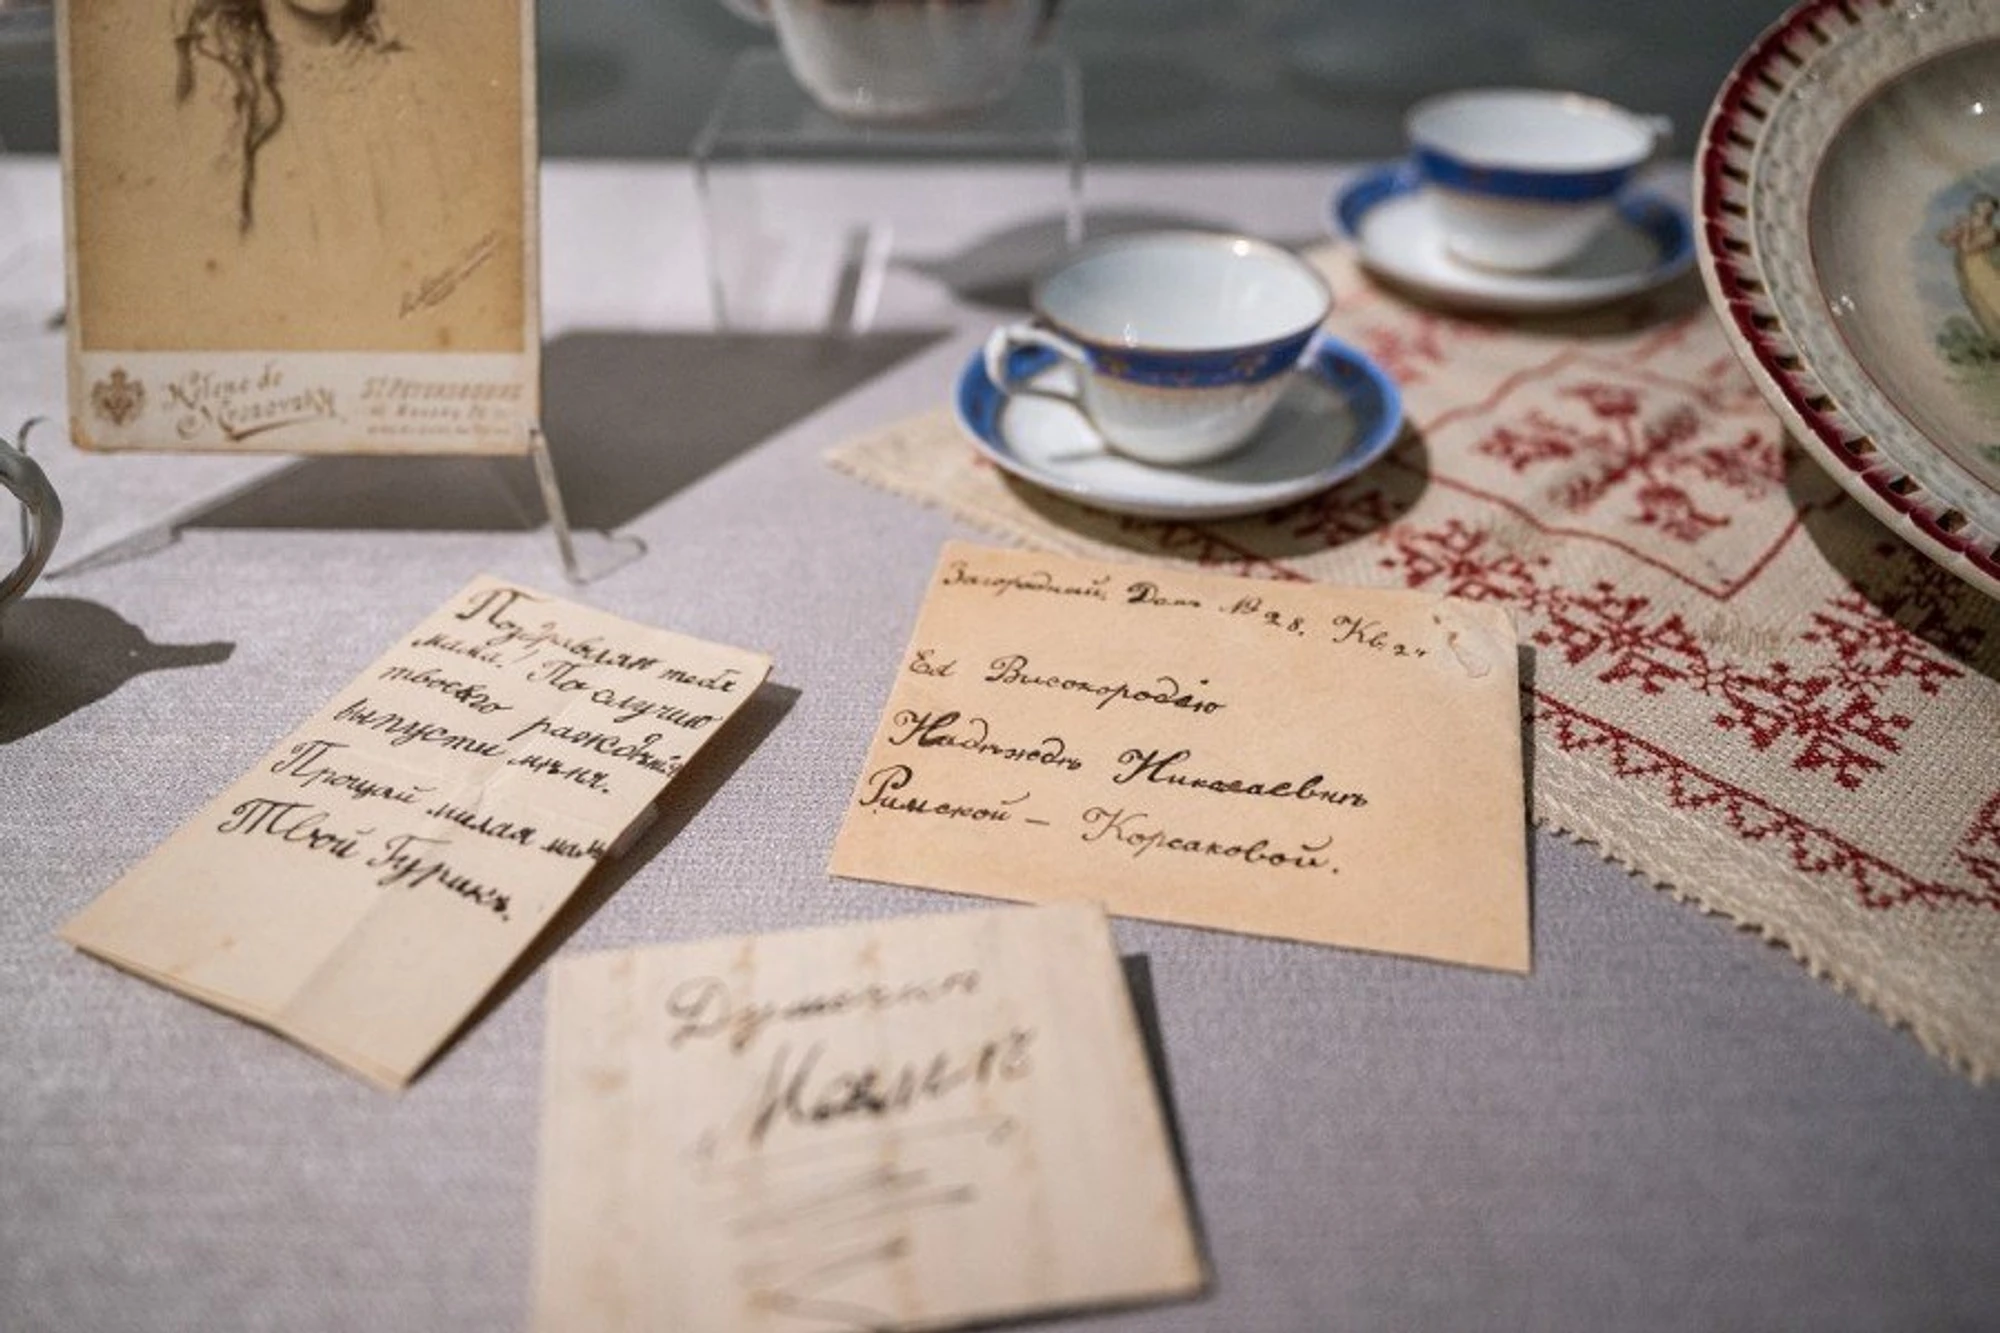 Hélène de
Mrosovsky
ST PETERSBOURG
Поздравляю тебя
мама! По случаю
твоего ражденiя
выпусти мѣня.
Прощай милая мама
Твой Гурикъ.
Загородный, Домъ № 28. Кв. 24
Ея Высокородiю
Надѣждѣ Николаевнѣ
Римской – Корсаковой.
Душечкѣ
Мамъгѣ